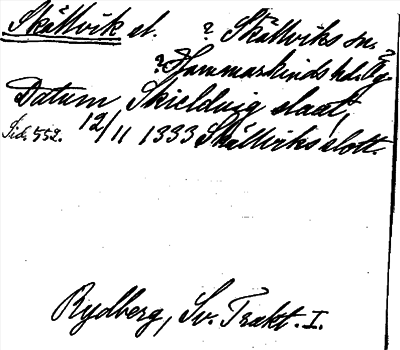 Skällvik sl. ? Skällviks sn.
? Hammarkinds hd. Ög ?
Datum Skieldvig slaat,
Sid. 552. 12/11 1333 Skällviks slott.
Rydberg, Sv. Trakt. I.